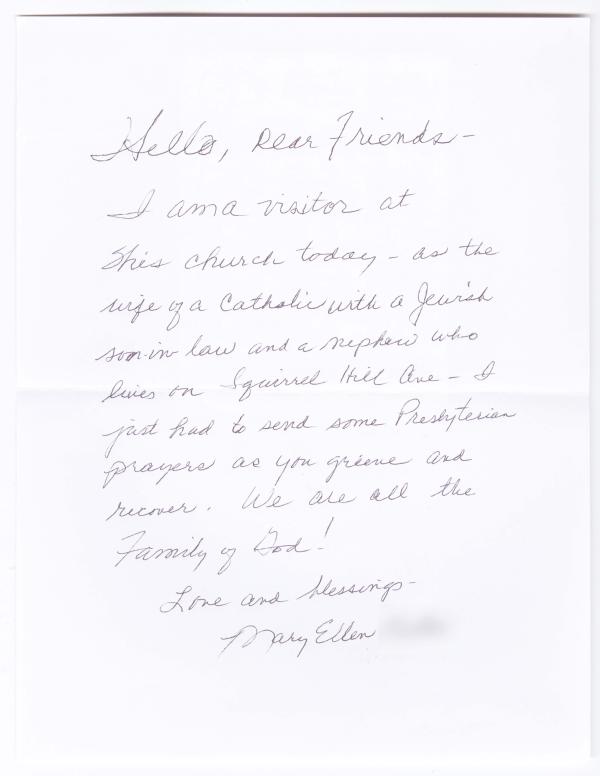 Hello, Dear Friends –
I am a visitor at
this church today – as the
wife of a Catholic with a Jewish
son-in-law and a nephew who
lives on Squirrel Hill Ave – I
just had to send some Presbyterian
prayers as you grieve and
recover. We are all the
Family of God!
Love and blessings –
Mary Ellen